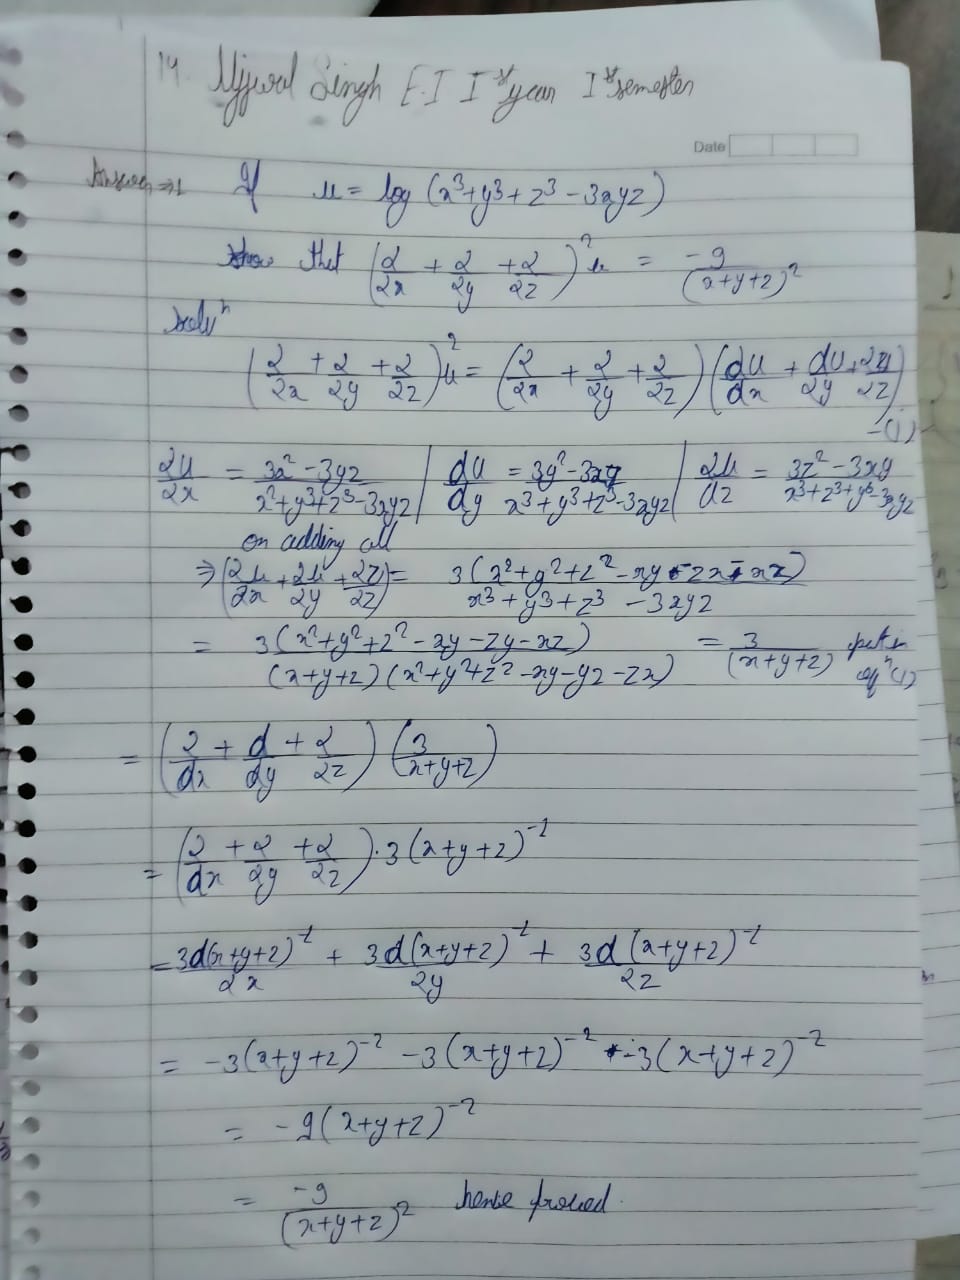 14. Ujjwal Singh E.I Iˢᵗ year Iˢᵗ semester
Date
Answer ⇒ 1 If u = log (x³+y³+z³-3xyz)
show that (∂/∂x + ∂/∂y + ∂/∂z)² u = -9/(x+y+z)²
solⁿ
(∂/∂x + ∂/∂y + ∂/∂z)² u = (∂/∂x + ∂/∂y + ∂/∂z) (du/dx + du/∂y + ∂u/∂z) -(1)
∂u/∂x = 3x²-3yz/x²+y³+z³-3xyz | du/dy = 3y²-3xz/x³+y³+z³-3xyz | ∂u/dz = 3z²-3xy/x³+z³+y³-3xyz
on adding all
⇒ (∂u/∂x + ∂u/∂y + ∂z/∂z) = 3(x²+y²+z²-xy-zx-xz)/x³+y³+z³-3xyz
= 3(x²+y²+z²-xy-zy-xz)/(x+y+z)(x²+y²+z²-xy-yz-zx) = 3/(x+y+z) put in eqⁿ(1)
= (∂/dx + d/dy + ∂/∂z) (3/x+y+z)
= (∂/dx + ∂/∂y + ∂/∂z) · 3(x+y+z)⁻¹
= 3d(x+y+z)⁻¹/∂x + 3d(x+y+z)⁻¹/∂y + 3d(x+y+z)⁻¹/∂z
= -3(x+y+z)⁻² -3(x+y+z)⁻² -3(x+y+z)⁻²
= -9(x+y+z)⁻²
= -9/(x+y+z)² hense proved.